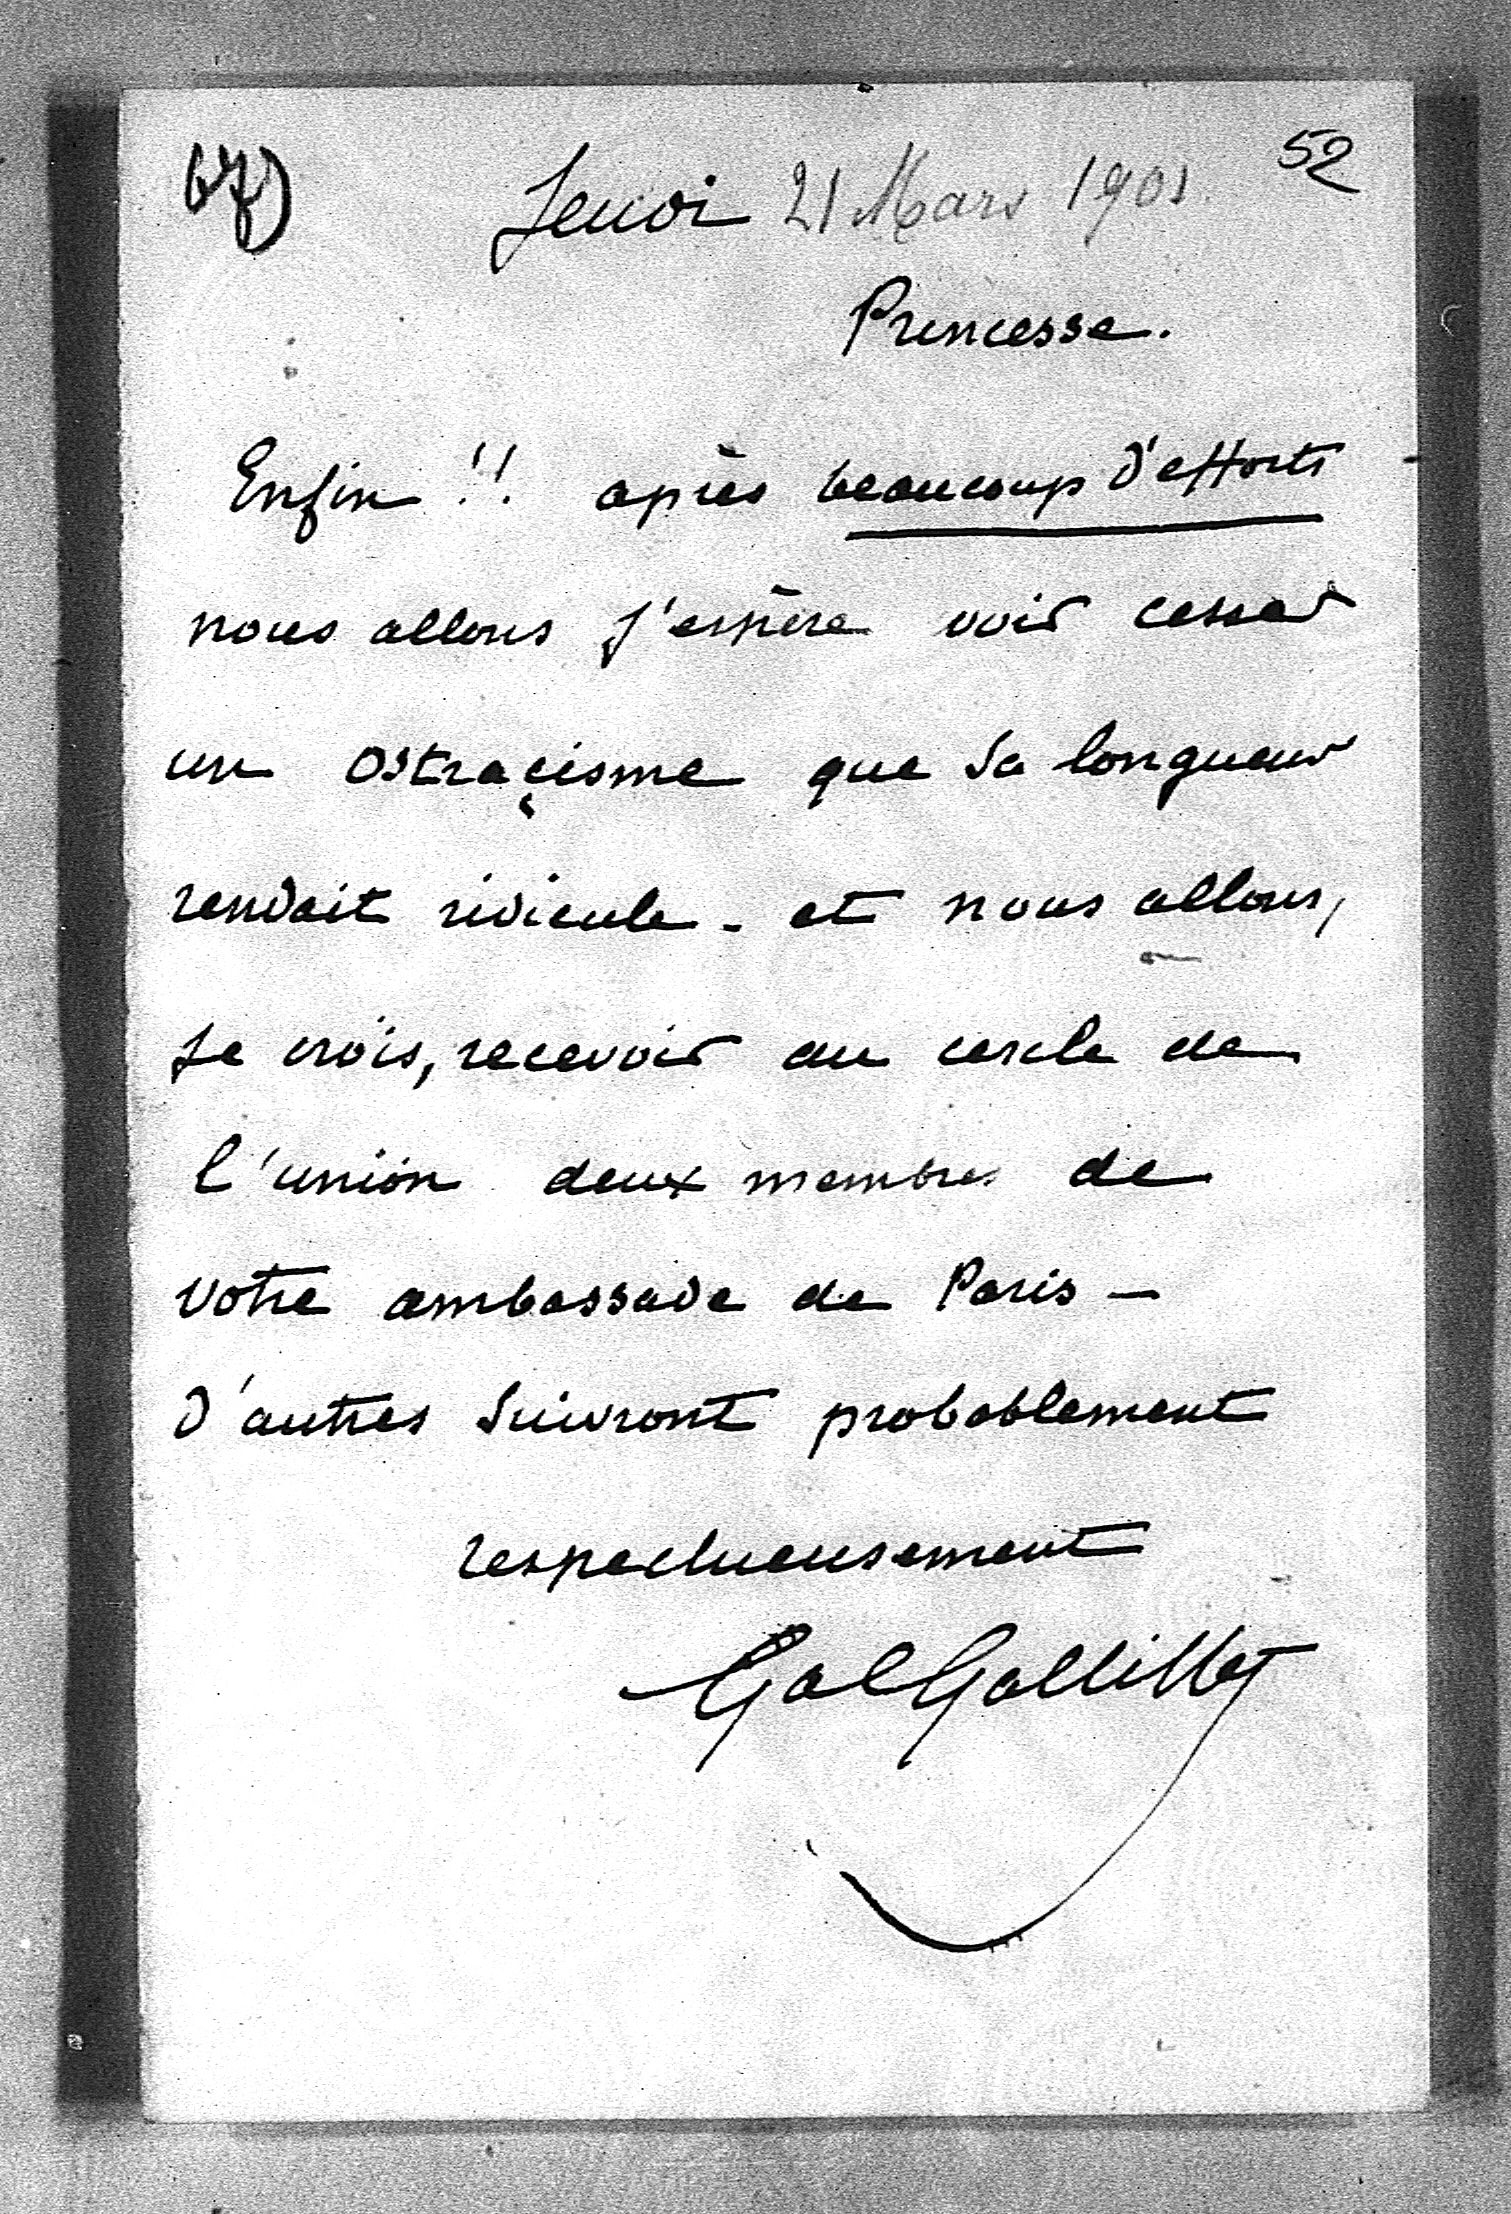 67) 52
Jeudi 21 Mars 1901
Princesse.
Enfin !! après beaucoup d'efforts
nous allons j'espère voir cesser
un ostraçisme que sa longueur
rendait ridicule - et nous allons,
je crois, recevoir au cercle de
l'union deux membres de
votre ambassade de Paris -
d'autres suivront probablement
respectueusement
Gal Galliffet